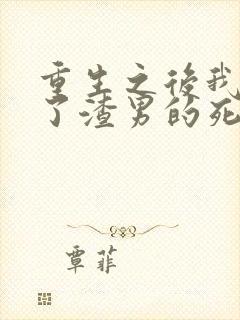 重生之後我
了渣男的死
覃菲